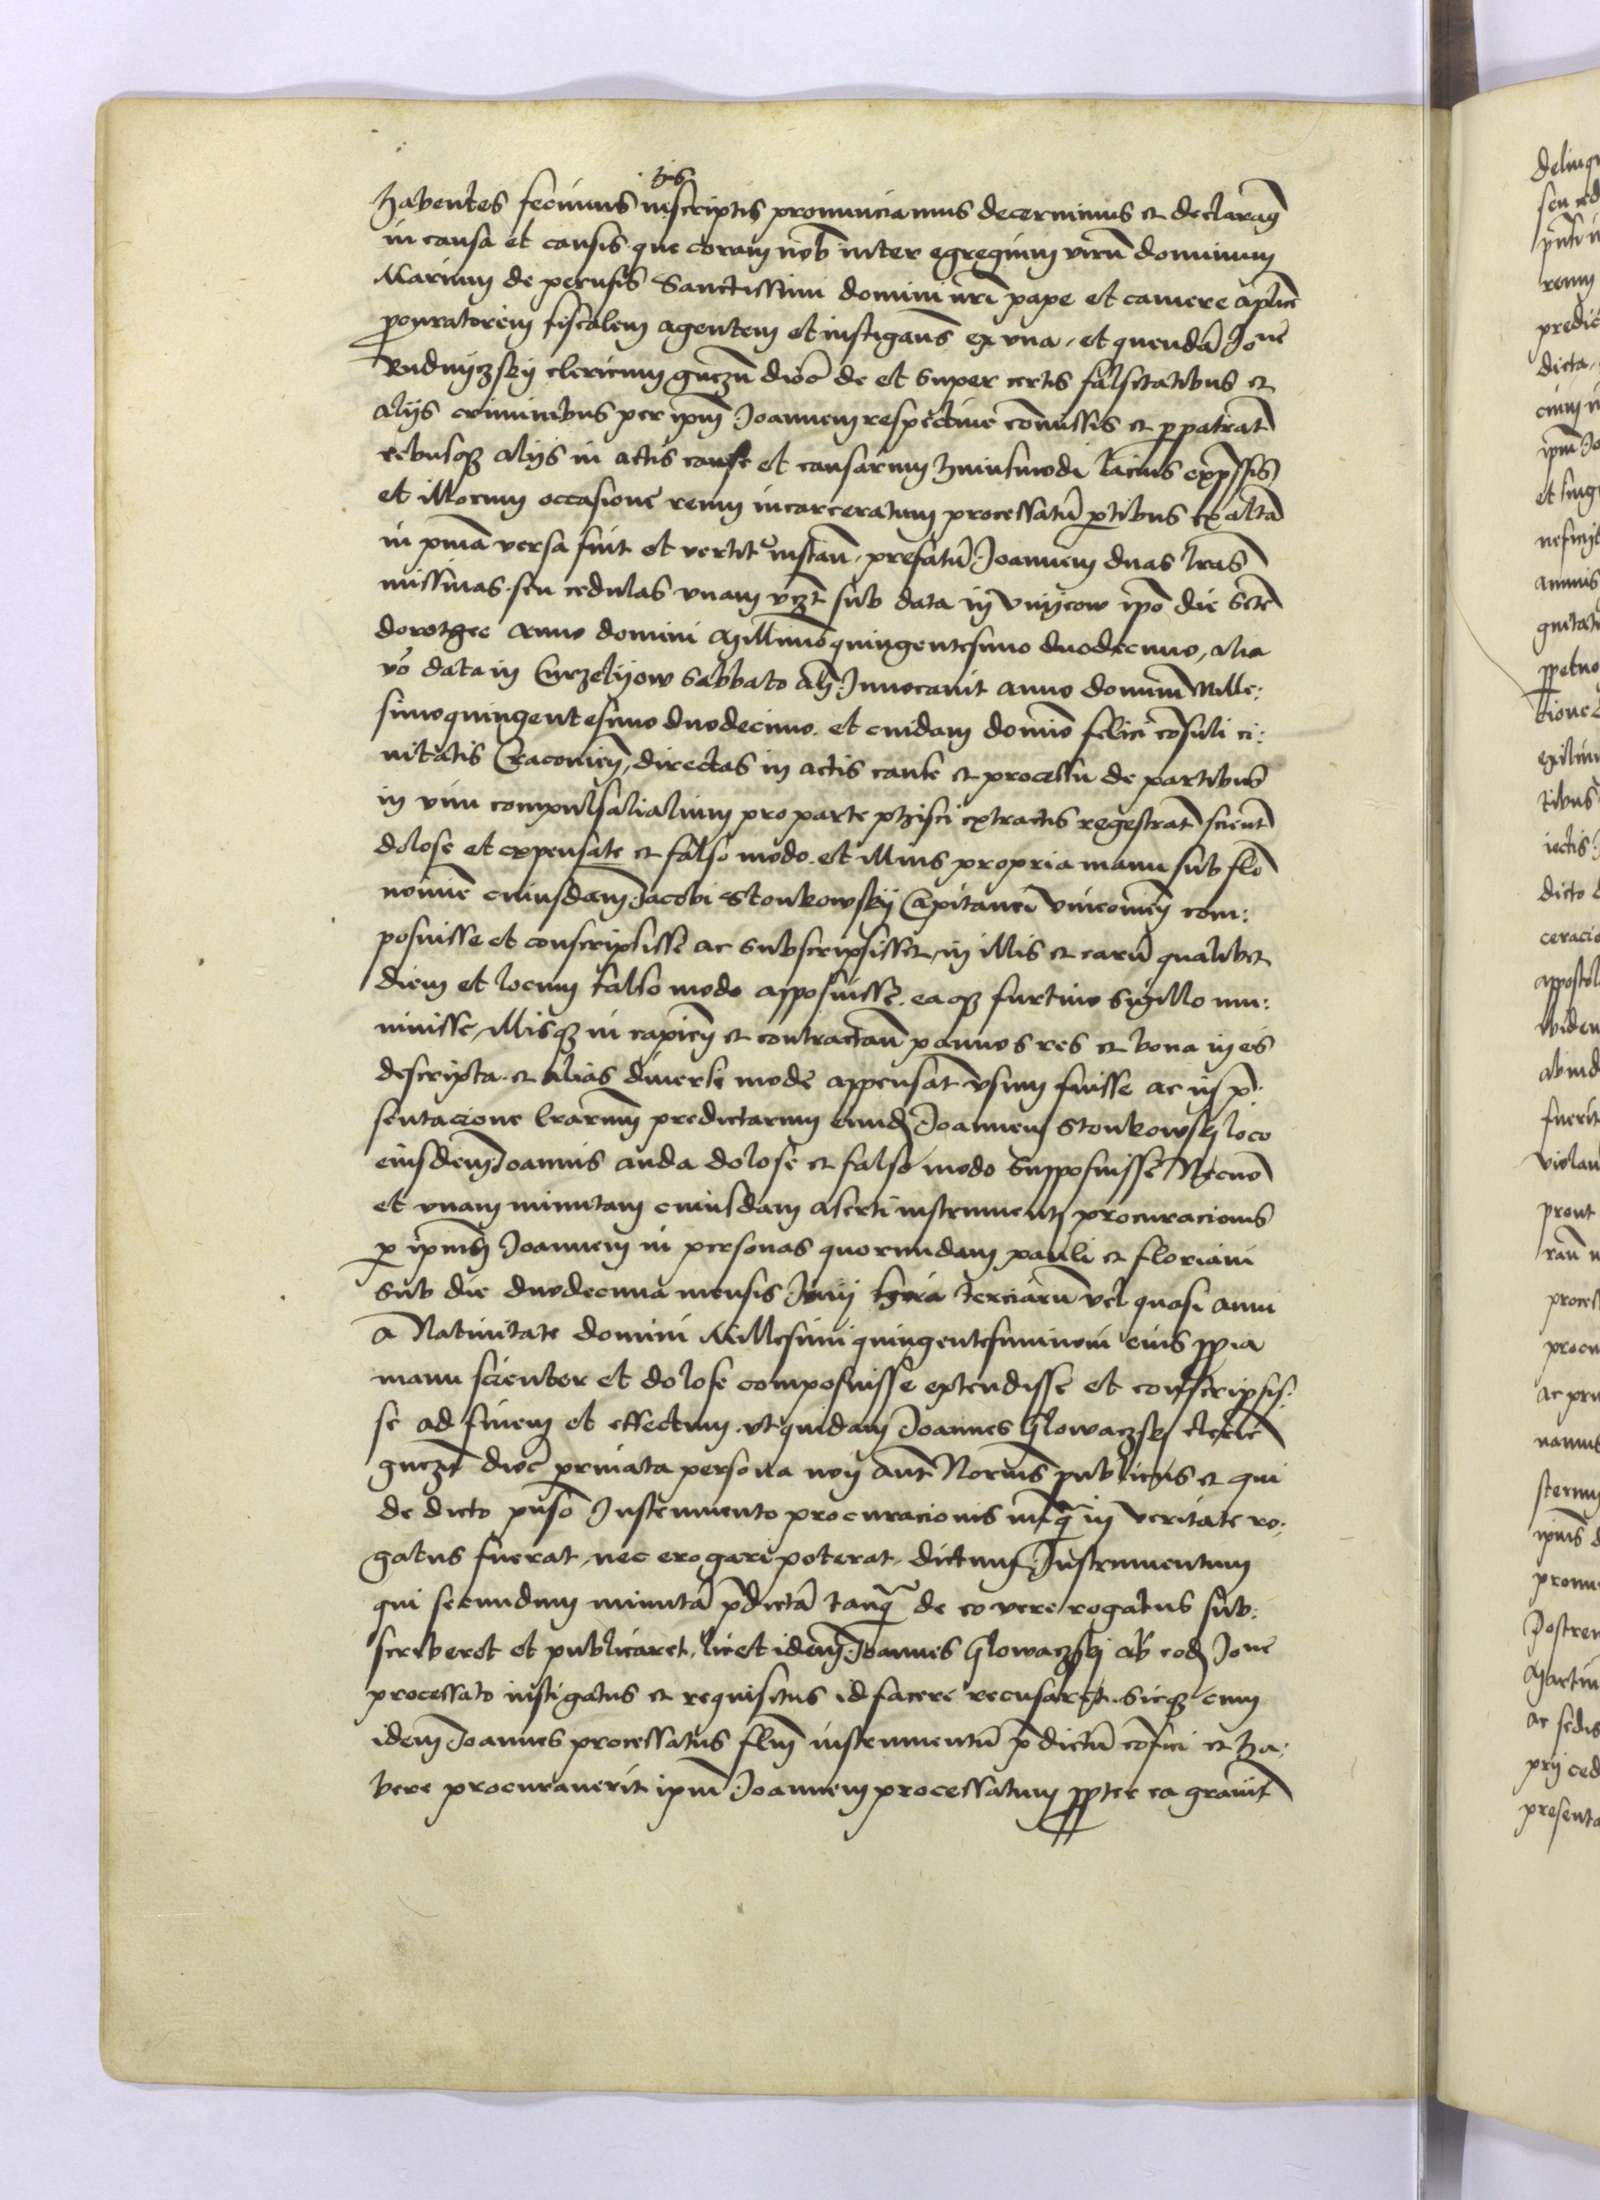 habentes fecimus inscriptis pronunciamus decernimus et declaram̄
his
in causa et causis que coram nob̄ inter egregium virū dominum
Marium de perusis Sanctissimi domini nr̄i pape et camere aplice
procuratorem fiscalem agentem et instigan̄ ex vna, et quendā Joan̄e
Rudnyczsky clericum gnezn̄ dioc̄ de et super certis falsitatibus et
alijs criminibus per ipm̄ Joannem respectiue com̄issis et ꝑpatrat̄
rebusqȝ alijs in actis cause et causarum huiusmodi lacius exp̄ssis
et illorum occasione reum incarceratum processatū ꝑtibus ex altā
in prima versa fuit et vertit᷑ instan̄, prefatū Joannem duas lr̄as
missiuas seu cedulas vnam vczt̄ sub data in vnijeow ip̄o die Scte
dorothee Anno domini Millimoquingentesimo duodecimo, alia
vo data in Curzelijow Sabbato añ Inuocauit anno domini Mille:
simoquingentesimo duodecimo. et cuidam domino felici cōsuli ci:
uitatis Cracouien̄, directas in actis cause et processu de partibus
in vim compulsalialium pro parte phisci extractis regestrat̄ scient̄
dolose et expensate et falso modo. et illius propria manu sub flo
nomine cuiusdam Jacobi Stonkowsky Capitanei vnieouien̄ com:
posuisse et conscripsisse ac subscripsisse, in illis et earū qualibet
diem et locum falso modo apposuisse. eaqȝ furtiuo sigillo mu:
niuisse, illisqȝ in capien̄ et contractan̄ pannos res et bona in eis
descripta. et alias diuerse mode appensat̄ vsum fuisse ac in p̄:
sentacione lr̄arum predictarum eund̄ Joannem Stonkowsky loco
eiusdem Joannis anda dolose et falso modo supposuisse Necnō
et vnam minutam cuiusdam aserti instrumenti procuracionis
ꝑ ipm̄ Joannem in personas quorundam pauli et floriani
Sub die duodecima mensis Junij hora terciarū vel quasi anni
a Natiuitate domini Millesimi quingentesiminoni eius ꝓpia
manu scienter et dolose composuisse extendisse et conscripsis:
se ad finem et effectum. vt quidam Joannes Glowaczsky cleric̄
gnezn̄ dioc̄ priuata persona non aut̄ Norius publicus et qui
de dicto p̄nso Instrumento procuracionis nūq̄ in veritate ro:
gatus fuerat, nec erogari poterat. dictum Instrumentum
qui secundum minutā p̄dictā tanq̄ de eo vere rogatus sub:
scriberet et publicaret. licet idem Joannes Glowaczsky ab eod̄ Joan̄e
processato instigatus et requisitus id facere recusaret. Sicqȝ cum
idem Joannes processatus flm̄ instrumentū p̄dictū cōfici et ha:
bere procurauerit ipm̄ Joannem processatum ꝓpter ea grauit̄